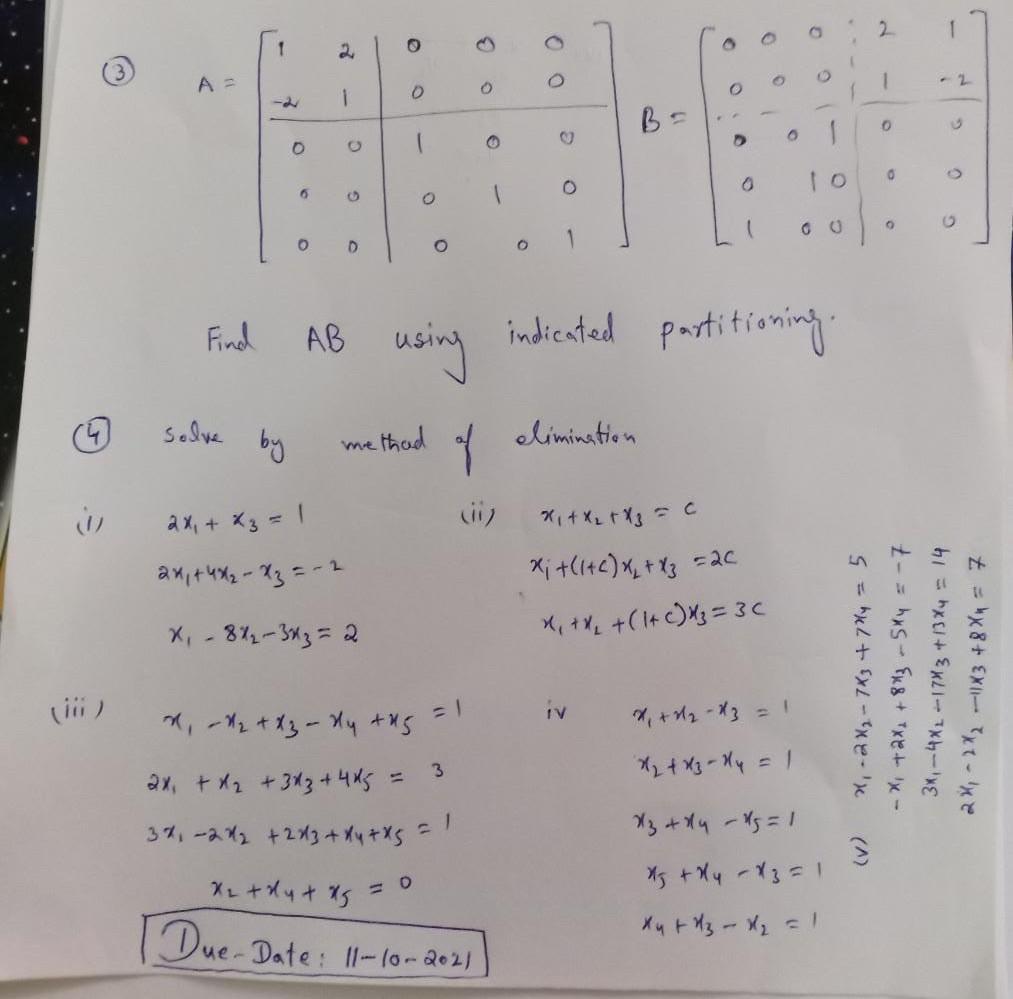 ③ A = [ 1 2 | 0 0 0
-2 1 | 0 0 0
0 0 | 1 0 0
0 0 | 0 1 0
0 0 | 0 0 1 ]
B = [ 0 0 0 2 1
0 0 0 1 -2
0 0 1 0 0
0 1 0 0 0
1 0 0 0 0 ]
Find AB using indicated partitioning.
④ Solve by method of elimination
(i) 2x₁ + x₃ = 1
2x₁ + 4x₂ - x₃ = -2
x₁ - 8x₂ - 3x₃ = 2
(ii) x₁ + x₂ + x₃ = c
x₁ + (1+c)x₂ + x₃ = 2c
x₁ + x₂ + (1+c)x₃ = 3c
(iii) x₁ - x₂ + x₃ - x₄ + x₅ = 1
2x₁ + x₂ + 3x₃ + 4x₅ = 3
3x₁ - 2x₂ + 2x₃ + x₄ + x₅ = 1
x₂ + x₄ + x₅ = 0
iv x₁ + x₂ - x₃ = 1
x₂ + x₃ - x₄ = 1
x₃ + x₄ - x₅ = 1
x₅ + x₄ - x₃ = 1
x₄ + x₃ - x₂ = 1
(v) x₁ - 2x₂ - 7x₃ + 7x₄ = 5
-x₁ + 2x₂ + 8x₃ - 5x₄ = -7
3x₁ - 4x₂ - 17x₃ + 13x₄ = 14
2x₁ - 2x₂ - 11x₃ + 8x₄ = 7
Due-Date: 11-10-2021